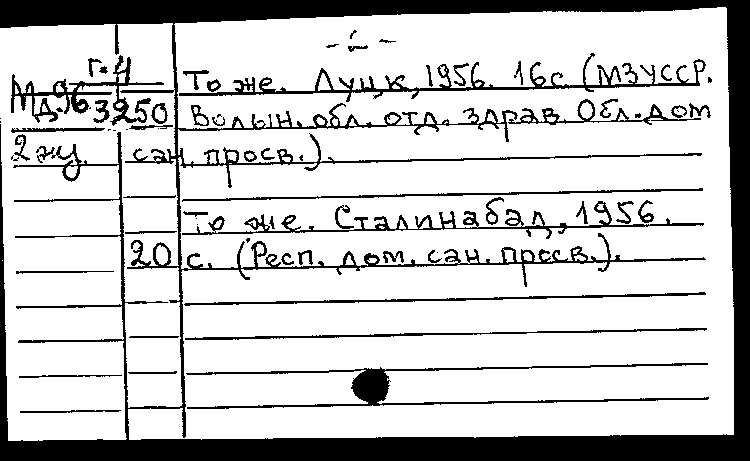 - 2 -
г-4
То же. Луцк, 1956. 16с (МЗУССР.
Мд96 3250 Волын. обл. отд. здрав. Обл. дом
2 экз. сан. просв.).
То же. Сталинабад, 1956.
20 с. (Респ. дом. сан. просв.).